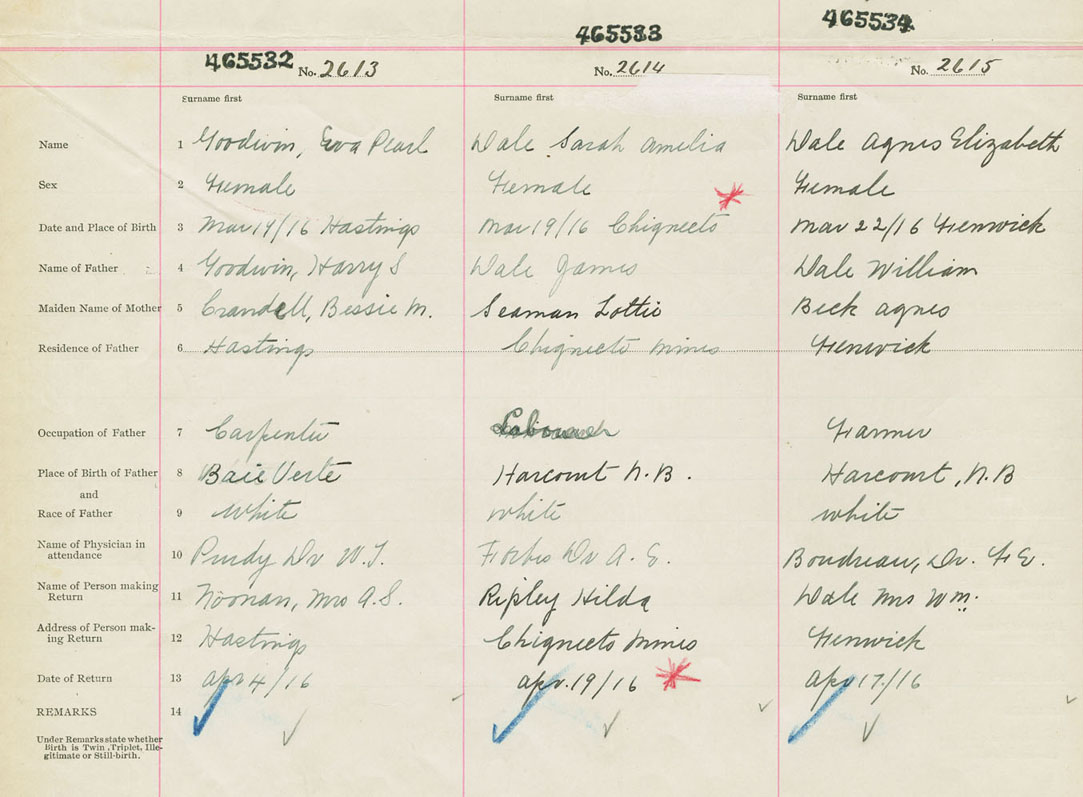 465532 465533 465534
No. 2613 No. 2614 No. 2615
Surname first Surname first Surname first
Name 1 Goodwin, Eva Pearl Dale Sarah Amelia Dale Agnes Elizabeth
Sex 2 Female Female Female
Date and Place of Birth 3 Mar 14/16 Hastings Mar 19/16 Chignecto Mar 22/16 Fenwick
Name of Father 4 Goodwin, Harry S Dale James Dale William
Maiden Name of Mother 5 Crandell, Bessie M. Seaman Lottie Beck Agnes
Residence of Father 6 Hastings Chignecto Mines Fenwick
Occupation of Father 7 Carpenter Labourer Farmer
Place of Birth of Father 8 Baie Verte Harcourt N.B. Harcourt, N.B
and
Race of Father 9 White White White
Name of Physician in
attendance 10 Purdy Dr W.T. Forbes Dr A.E. Boudreau, Dr. F.E.
Name of Person making
Return 11 Noonan, Mrs A.S. Ripley Hilda Dale Mrs Wm.
Address of Person mak-
ing Return 12 Hastings Chignecto Mines Fenwick
Date of Return 13 Apr 4/16 Apr. 19/16 Apr 17/16
REMARKS 14
Under Remarks state whether
Birth is Twin, Triplet, Ille-
gitimate or Still-birth.